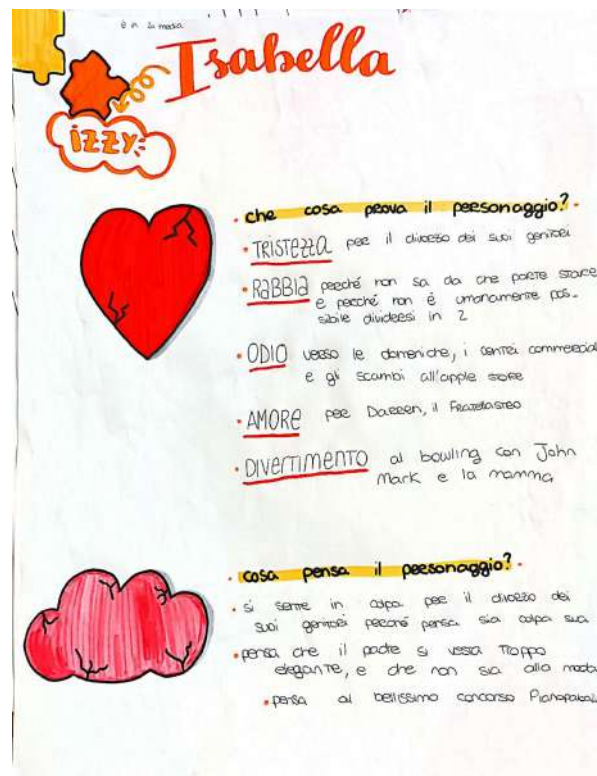 Isabella
izzy
• che cosa prova il personaggio? •
• TRISTEZZA per il divorzio dei suoi genitori
• RABBIA perché non sa da che parte stare
e perché non è umanamente pos-
sibile dividersi in 2
• ODIO verso le domeniche, i centri commercial
e gli scambi all'apple store
• AMORE per Darren, il Fratellastro
• DIVERTIMENTO al bowling con John
Mark e la mamma
• cosa pensa il personaggio? •
• si sente in colpa per il divorzio dei
suoi genitori perché pensa sia colpa sua
• pensa che il padre si vesta troppo
elegante, e che non sia alla moda
• pensa al bellissimo concorso